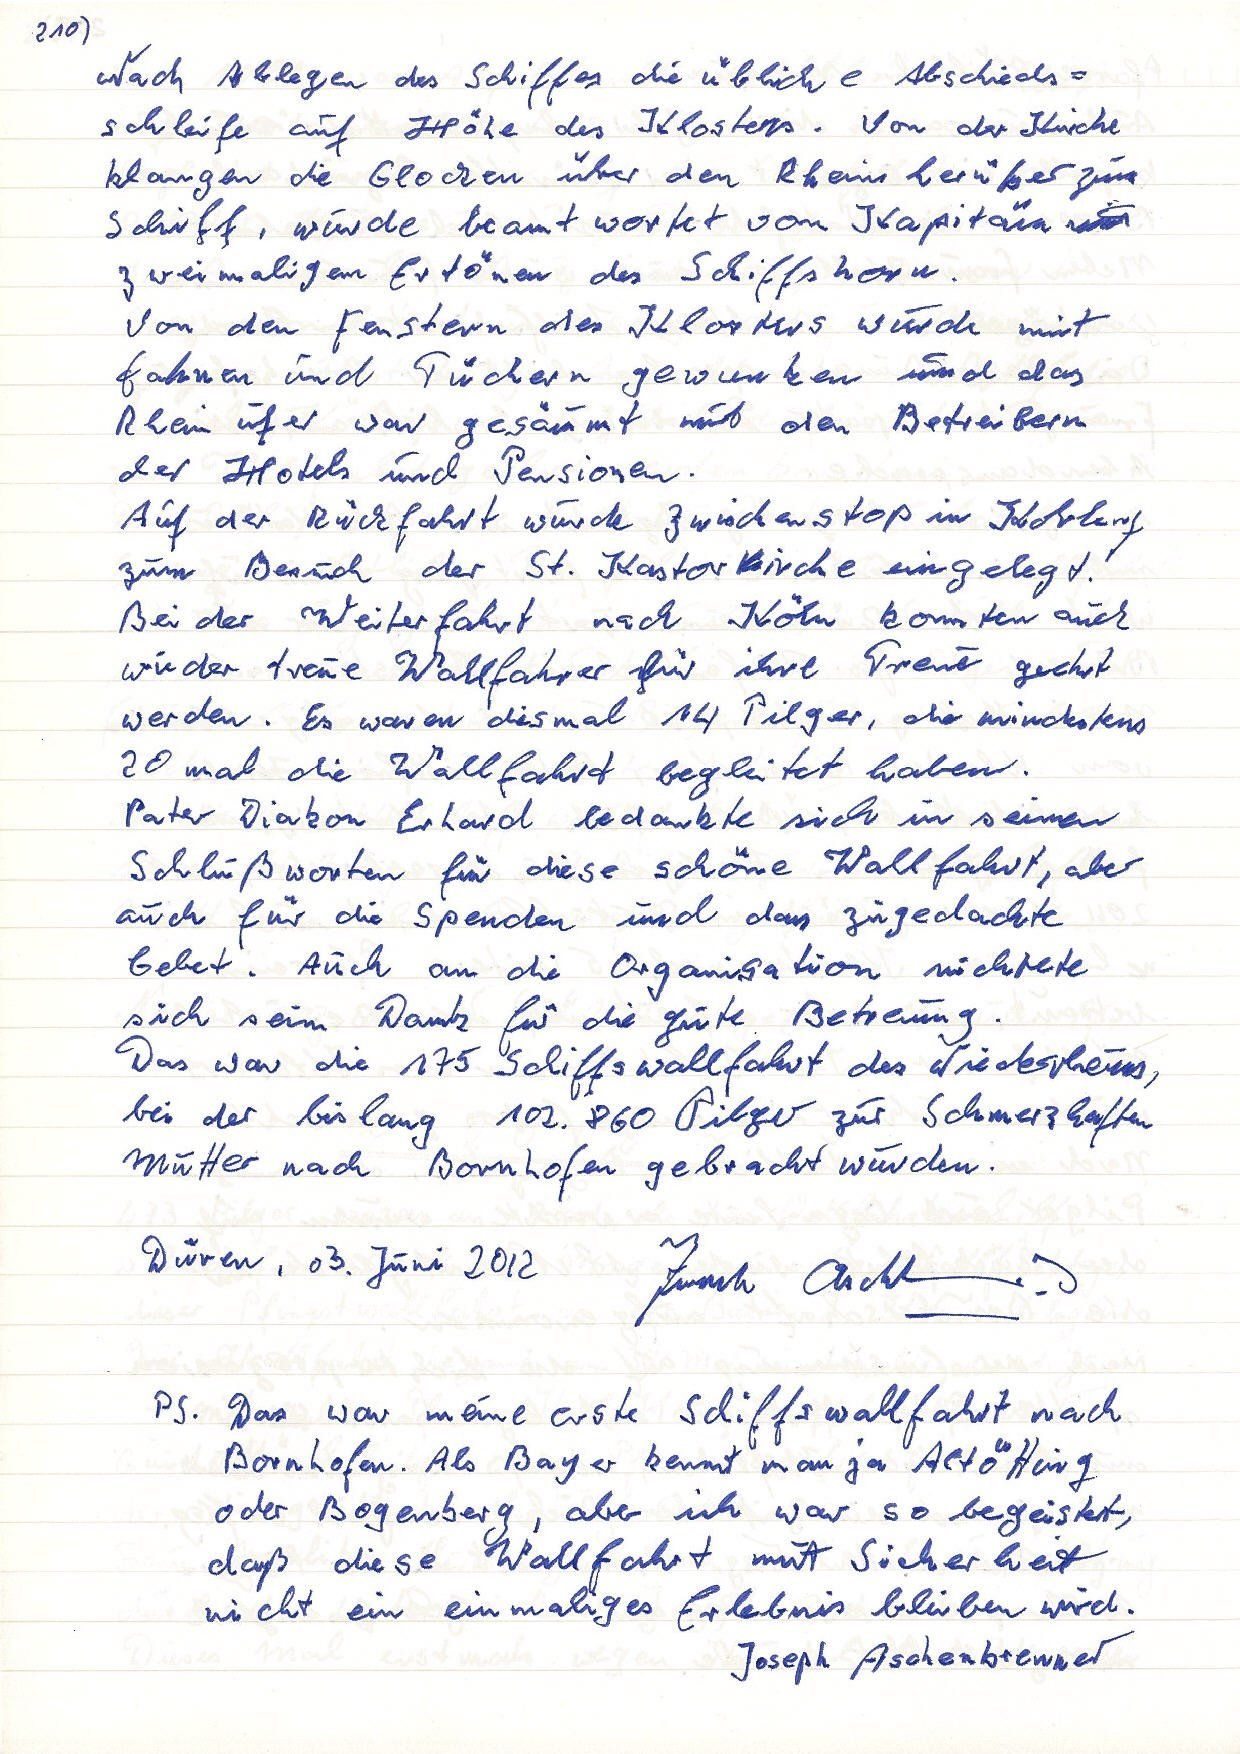 210)
Nach Ablegen des Schiffes die übliche Abschieds=
schleife auf Höhe des Klosters. Von der Kirche
klangen die Glocken über den Rhein herüber zum
Schiff, wurde beantwortet vom Kapitän mit
zweimaligem Ertönen des Schiffshorn.
Von den Fenstern des Klosters wurde mit
Fahnen und Tüchern gewunken und das
Rheinufer war gesäumt mit den Betreibern
der Hotels und Pensionen.
Auf der Rückfahrt wurde Zwischenstop in Koblenz
zum Besuch der St. Kastorkirche eingelegt.
Bei der Weiterfahrt nach Köln konnten auch
wieder treue Wallfahrer für ihre Treue geehrt
werden. Es waren diesmal 14 Pilger, die mindestens
20 mal die Wallfahrt begleitet haben.
Pater Diakon Erhard bedankte sich in seinen
Schlußworten für diese schöne Wallfahrt, aber
auch für die Spenden und das zugedachte
Gebet. Auch an die Organisation richtete
sich sein Dank für die gute Betreuung.
Das war die 175 Schiffswallfahrt des Niederrheins,
bei der bislang 102.860 Pilger zur Schmerzhaften
Mutter nach Bornhofen gebracht wurden.
Düren, 03. Juni 2012
PS. Das war meine erste Schiffswallfahrt nach
Bornhofen. Als Bayer kennt man ja Altötting
oder Bogenberg, aber ich war so begeistert,
daß diese Wallfahrt mit Sicherheit
nicht ein einmaliges Erlebnis bleiben wird.
Joseph Aschenbrenner